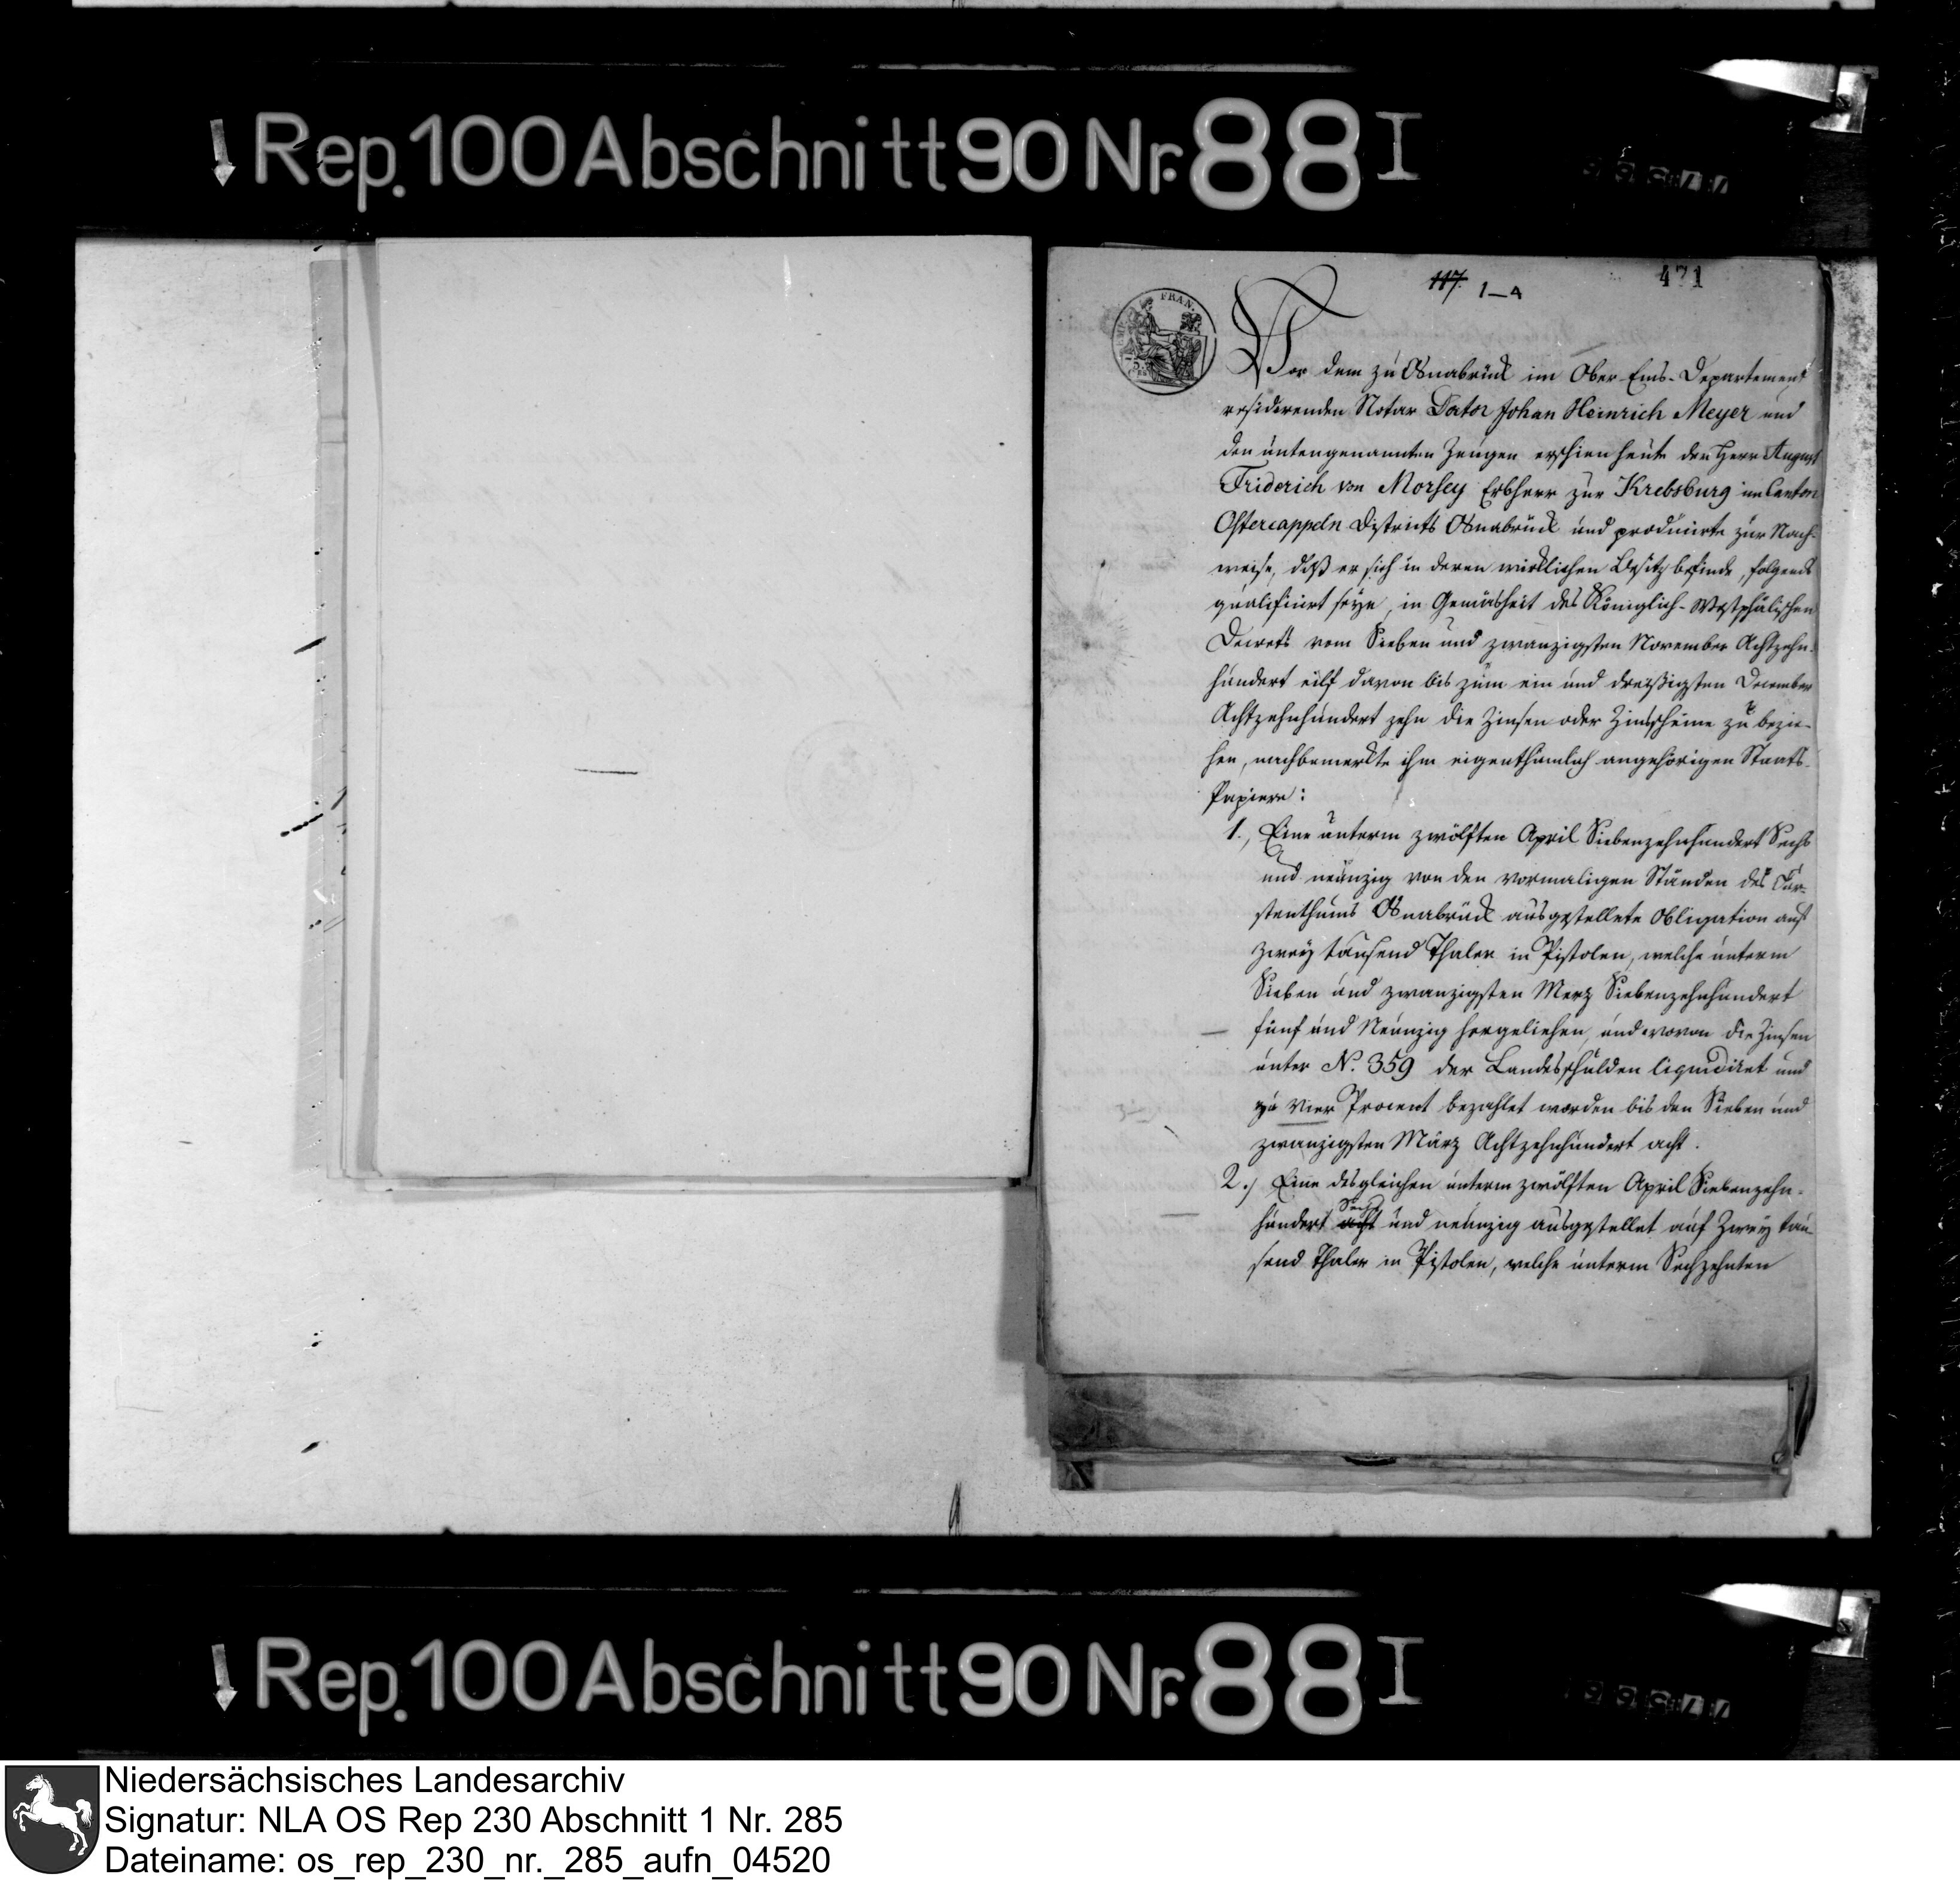 Rep. 100 Abschnitt 90 Nr. 88 I
117. 1–4
471
FRAN.
Vor dem zu Osnabrück im Ober-Ems-Departement
residirenden Notar Doctor Johan Heinrich Meyer und
den untengenannten Zeugen erschien heute der Herr August
Friderich von Morsey Erbherr zur Krebsburg im Canton
Ostercappeln Districts Osnabrück und producirte zur Nach-
weise, daß er sich in deren wirklichen Besitz befinde, folgends
qualificirt seye, in Gemäsheit des Königlich-Westphälischen
Decrets vom Sieben und zwanzigsten November Achtzehn-
hundert eilf davon bis zum ein und dreißigsten December
Achtzehnhundert zehn die Zinsen oder Zinsscheine zu bezie-
hen, nachbemerkte ihm eigenthümlich angehörigen Staats-
Papiere:
1., Eine unterm zwölften April Siebenzehnhundert Sechs
und neunzig von den vormaligen Ständen des Für-
stenthums Osnabrück ausgestellete Obligation auf
zwey tausend Thaler in Pistolen, welche unterm
Sieben und zwanzigsten Merz Siebenzehnhundert
fünf und Neunzig hergeliehen, und wovon die Zinsen
unter N. 359 der Landesschulden liquidiret und
zu vier Procent bezahlet worden bis den Sieben und
zwanzigsten März Achtzehnhundert acht.
2.) Eine desgleichen unterm zwölften April Siebenzehn-
Sechs
hundert acht und neunzig ausgestellet auf Zwey tau-
send Thaler in Pistolen, welche unterm Sechzehnten
Rep. 100 Abschnitt 90 Nr. 88 I
Niedersächsisches Landesarchiv
Signatur: NLA OS Rep 230 Abschnitt 1 Nr. 285
Dateiname: os_rep_230_nr._285_aufn_04520